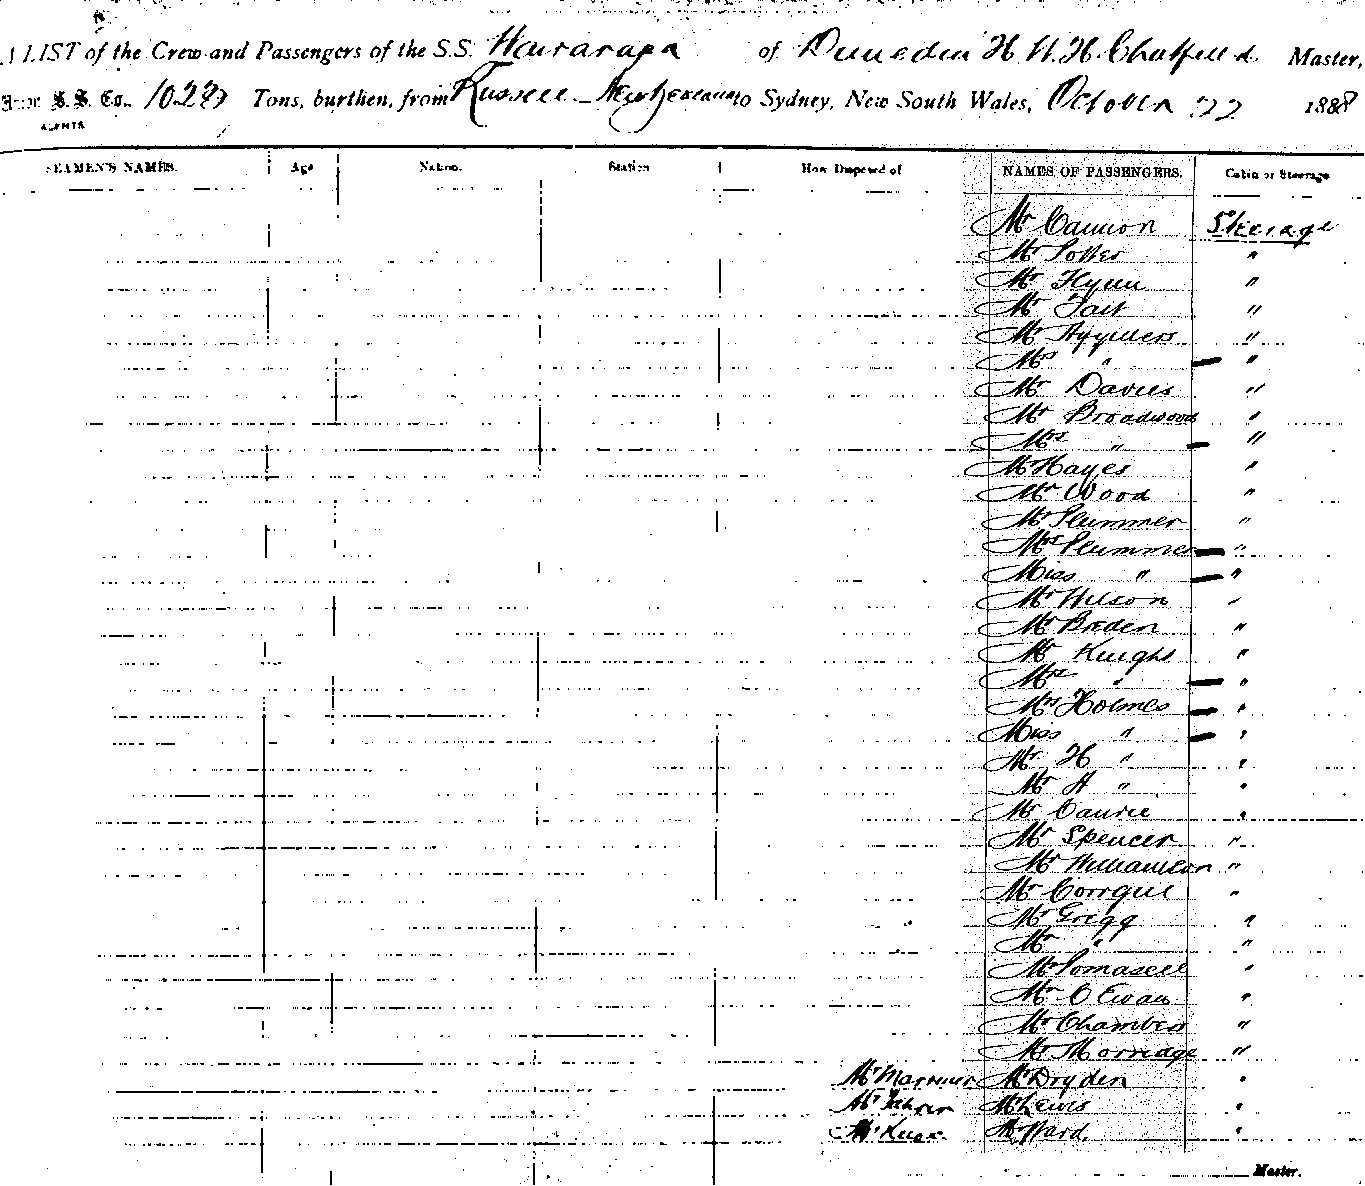 A LIST of the Crew and Passengers of the S.S. Wairarapa of Dunedin H W. H. Chatfield Master,
S. S. Co. 1023 Tons, burthen, from Russell New Zealand to Sydney, New South Wales, October 22 1888
AGENTS
SEAMEN'S NAMES. Age Nation. Station How Disposed of NAMES OF PASSENGERS. Cabin or Steerage
Mr Cannon Steerage
Mr Potter "
Mr Flynn "
Mr Tait "
Mr "
Mrs " "
Mr Davies "
Mr Broadwood "
Mrs " "
Mr Hayes "
Mr Wood "
Mr Plummer "
Mrs Plummer "
Miss " "
Mr Wilson "
Mr Breden "
Mr Knight "
Mrs " "
Mrs Holmes "
Miss " "
Mr H " "
Mr A " "
Mr "
Mr Spencer "
Mr Williamson "
Mr "
Mr Gregg "
Mr " "
Mr "
Mr O Ewan "
Mr Chambers "
Mr Morriage "
Mr Marriner Mr Dryden "
Mr Mr Lewis "
Mr Mr Ward "
Master.